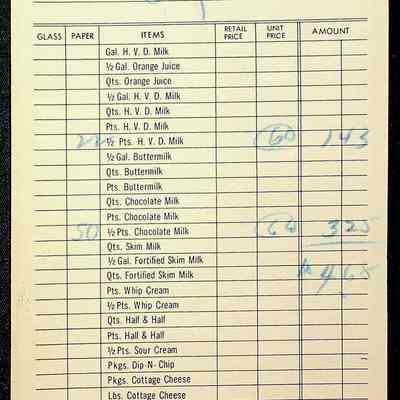 GLASS PAPER ITEMS RETAIL PRICE UNIT PRICE AMOUNT
Gal. H. V. D. Milk
½ Gal. Orange Juice
Qts. Orange Juice
½ Gal. H. V. D. Milk
Qts. H. V. D. Milk
Pts. H. V. D. Milk
22 ½ Pts. H. V. D. Milk 143
½ Gal. Buttermilk
Qts. Buttermilk
Pts. Buttermilk
Qts. Chocolate Milk
Pts. Chocolate Milk
50 ½ Pts. Chocolate Milk 325
Qts. Skim Milk
½ Gal. Fortified Skim Milk
Qts. Fortified Skim Milk 468
Pts. Whip Cream
½ Pts. Whip Cream
Qts. Half & Half
Pts. Half & Half
½ Pts. Sour Cream
Pkgs. Dip-N-Chip
Pkgs. Cottage Cheese
Lbs. Cottage Cheese